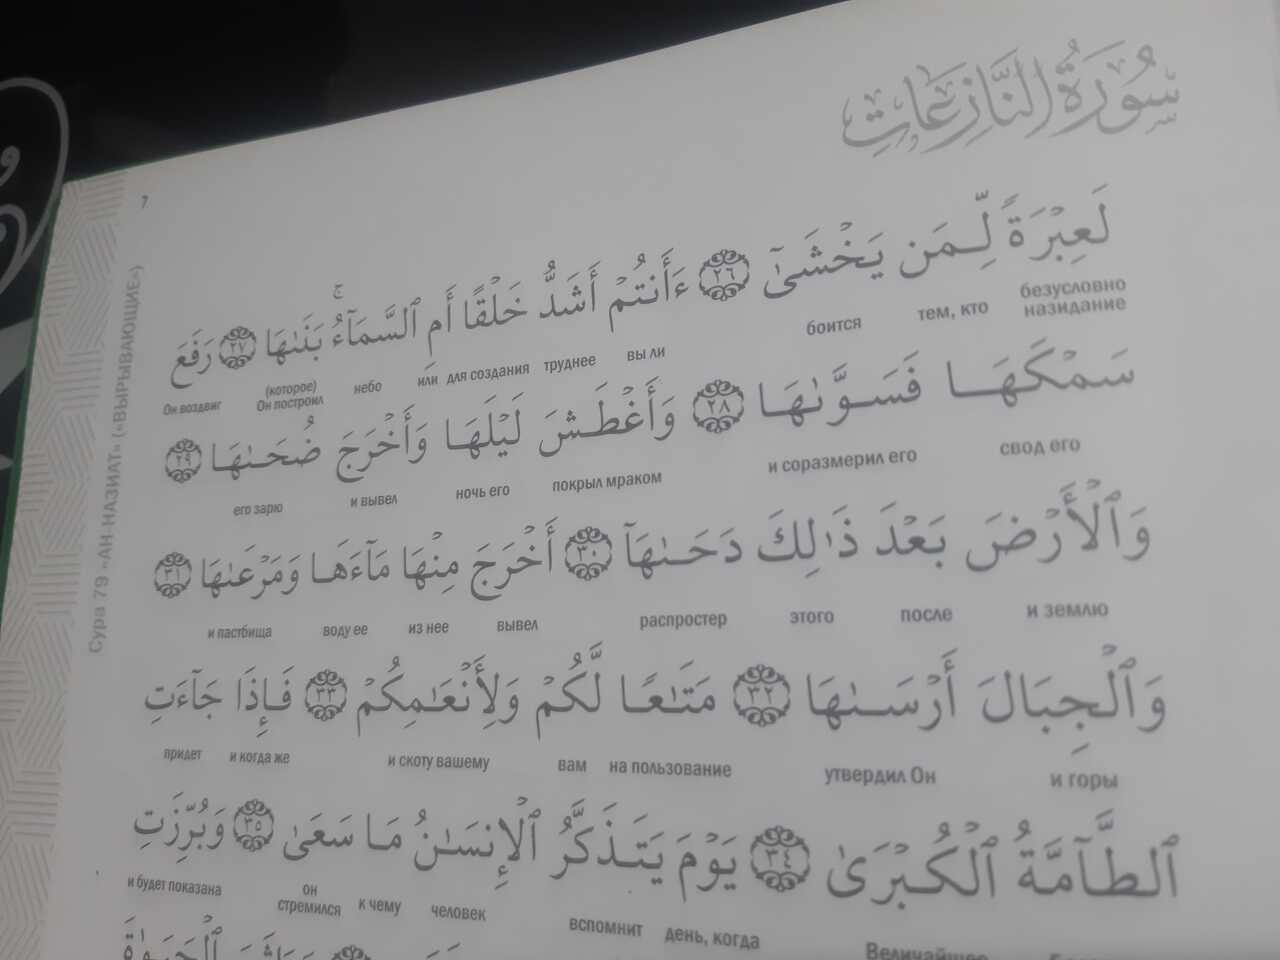 سُورَةُ النَّازِعَاتِ
7
Сура 79 «АН-НАЗИАТ» («ВЫРЫВАЮЩИЕ»)
لَعِبْرَةً لِّمَن يَخْشَىٰٓ ٢٦ ءَأَنتُمْ أَشَدُّ خَلْقًا أَمِ ٱلسَّمَآءُ ۚ بَنَىٰهَا ٢٧ رَفَعَ
безусловно назидание тем, кто боится вы ли труднее для создания или небо (которое) Он построил Он воздвиг
سَمْكَهَا فَسَوَّىٰهَا ٢٨ وَأَغْطَشَ لَيْلَهَا وَأَخْرَجَ ضُحَىٰهَا ٢٩
свод его и соразмерил его покрыл мраком ночь его и вывел его зарю
وَٱلْأَرْضَ بَعْدَ ذَٰلِكَ دَحَىٰهَآ ٣٠ أَخْرَجَ مِنْهَا مَآءَهَا وَمَرْعَىٰهَا ٣١
и землю после этого распростер вывел из нее воду ее и пастбища
وَٱلْجِبَالَ أَرْسَىٰهَا ٣٢ مَتَٰعًا لَّكُمْ وَلِأَنْعَٰمِكُمْ ٣٣ فَإِذَا جَآءَتِ
и горы утвердил Он на пользование вам и скоту вашему и когда же придет
ٱلطَّآمَّةُ ٱلْكُبْرَىٰ ٣٤ يَوْمَ يَتَذَكَّرُ ٱلْإِنسَٰنُ مَا سَعَىٰ ٣٥ وَبُرِّزَتِ
Величайшее день, когда вспомнит человек к чему он стремился и будет показана